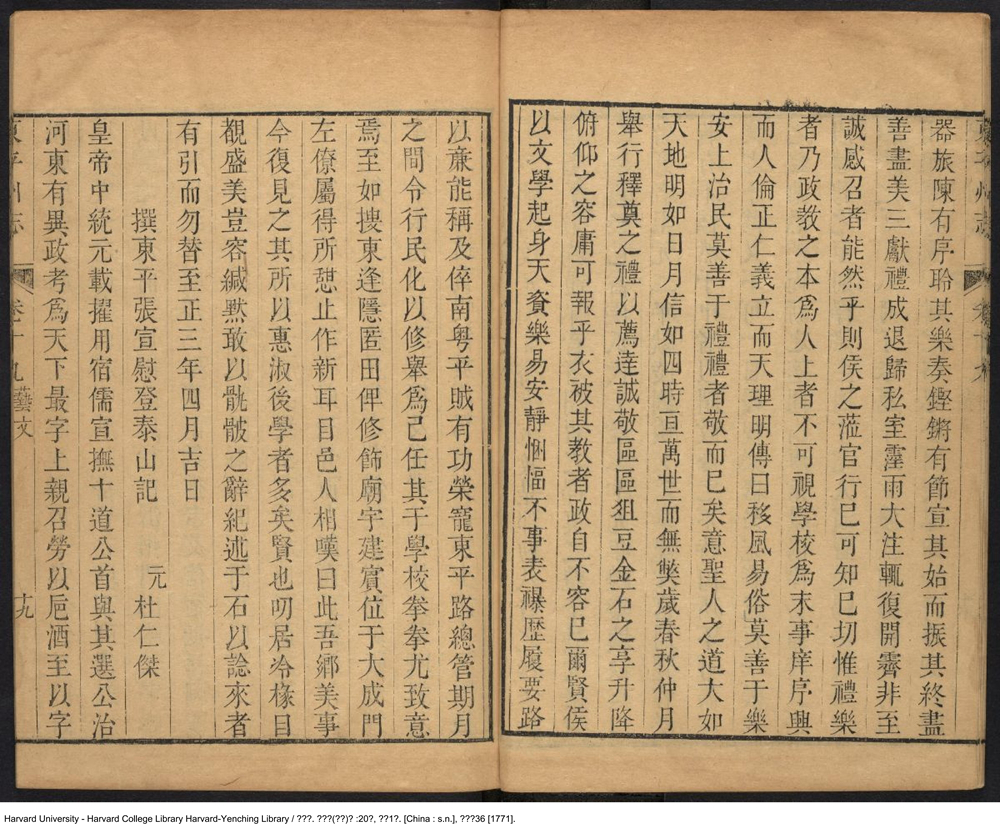 東平州志
器旅陳有序聆其樂奏鏗鏘有節宣其始而振其終盡
善盡美三獻禮成退歸私室𩆜雨大注輒復開霽非至
誠感召者能然乎則侯之蒞官行巳可知巳切惟禮樂
者乃政教之本爲人上者不可視學校爲末事庠序興
而人倫正仁義立而天理明傳曰移風易俗莫善于樂
安上治民莫善于禮禮者敬而巳矣意聖人之道大如
天地明如日月信如四時亘萬世而無獘歲春秋仲月
舉行釋奠之禮以薦逹誠敬區區俎豆金石之享升降
俯仰之容庸可報乎衣被其教者政自不容巳爾賢侯
以文學起身天資樂易安靜悃愊不事表襮歴履要路
以亷能稱及倅南粤平賊有功榮寵東平路總管期月
之間令行民化以修舉爲己任其于學校拳拳尤致意
焉至如摟東逢隱匿田俾修飾廟宇建賓位于大成門
左僚屬得所憇止作新耳目邑人相嘆曰此吾鄉美事
今復見之其所以惠淑後學者多矣賢也叨居冷椽目
覩盛美豈容緘黙敢以骫骳之辭紀述于石以諗來者
有引而勿替至正三年四月吉日
撰東平張宣慰登泰山記
元 杜仁傑
皇帝中統元載擢用宿儒宣撫十道公首與其選公治
河東有異政考爲天下最字上親召勞以巵酒至以字
東平州志
卷十九藝文
十九
Harvard University - Harvard College Library Harvard-Yenching Library / ???. ???(??)? :20?, ??1?. [China : s.n.], ???36 [1771].